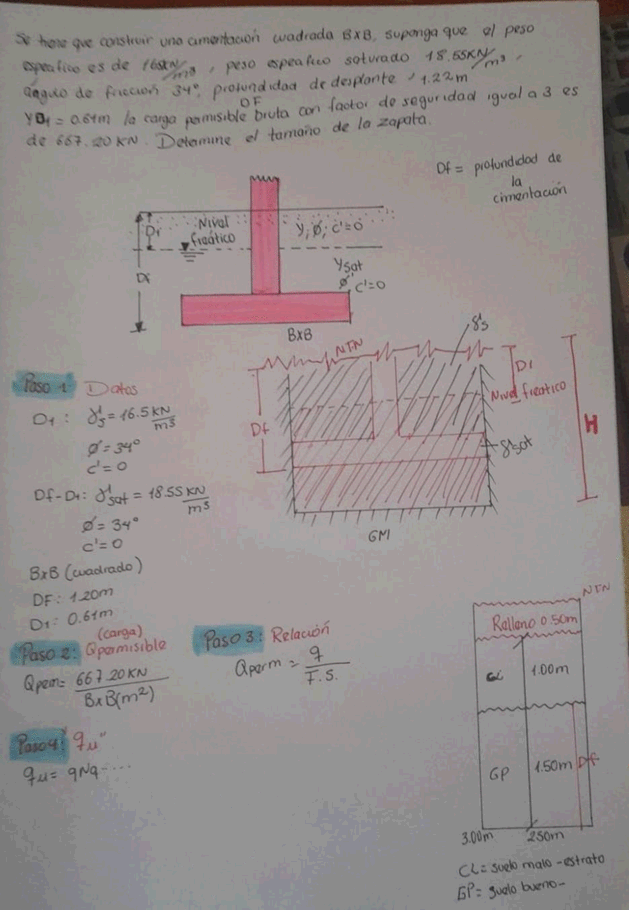 Se tiene que construir una cimentación cuadrada BxB, suponga que el peso
especifico es de 16.5KN/m³, peso especifico saturado 18.55KN/m³,
ángulo de fricción 34°, profundidad de desplante 1.22m
DF
YD1 = 0.61m la carga permisible bruta con factor de seguridad igual a 3 es
de 667.20 KN. Determine el tamaño de la zapata.
Df = profundidad de
la
cimentación
Nivel
freático
D1
Df
γ, ϕ', c'=0
γsat
ϕ'
c'=0
BxB
NTN
γ's
D1
Nivel freático
Df
H
γ'sat
GM
Paso 1: Datos
D1: γ's = 16.5 KN/m³
ϕ' = 34°
c' = 0
Df-D1: γ'sat = 18.55 KN/m³
ϕ' = 34°
c' = 0
BxB (cuadrado)
DF: 1.20m
D1: 0.61m
(carga)
Paso 2: Qpermisible
Qperm = 667.20 KN / BxB(m²)
Paso 3: Relación
Qperm = q / F.S.
Paso 4: "qu"
qu = qNq ....
NTN
Relleno 0.50m
CL 1.00m
GP 1.50m Df
3.00m 250m
CL = suelo malo - estrato
GP = suelo bueno -